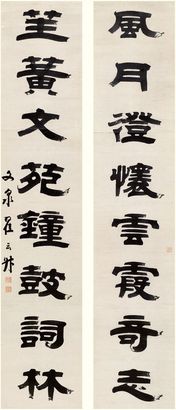 風月澄懷雲霞奇志
笙簧文苑鐘鼓詞林
文泉瞿云升